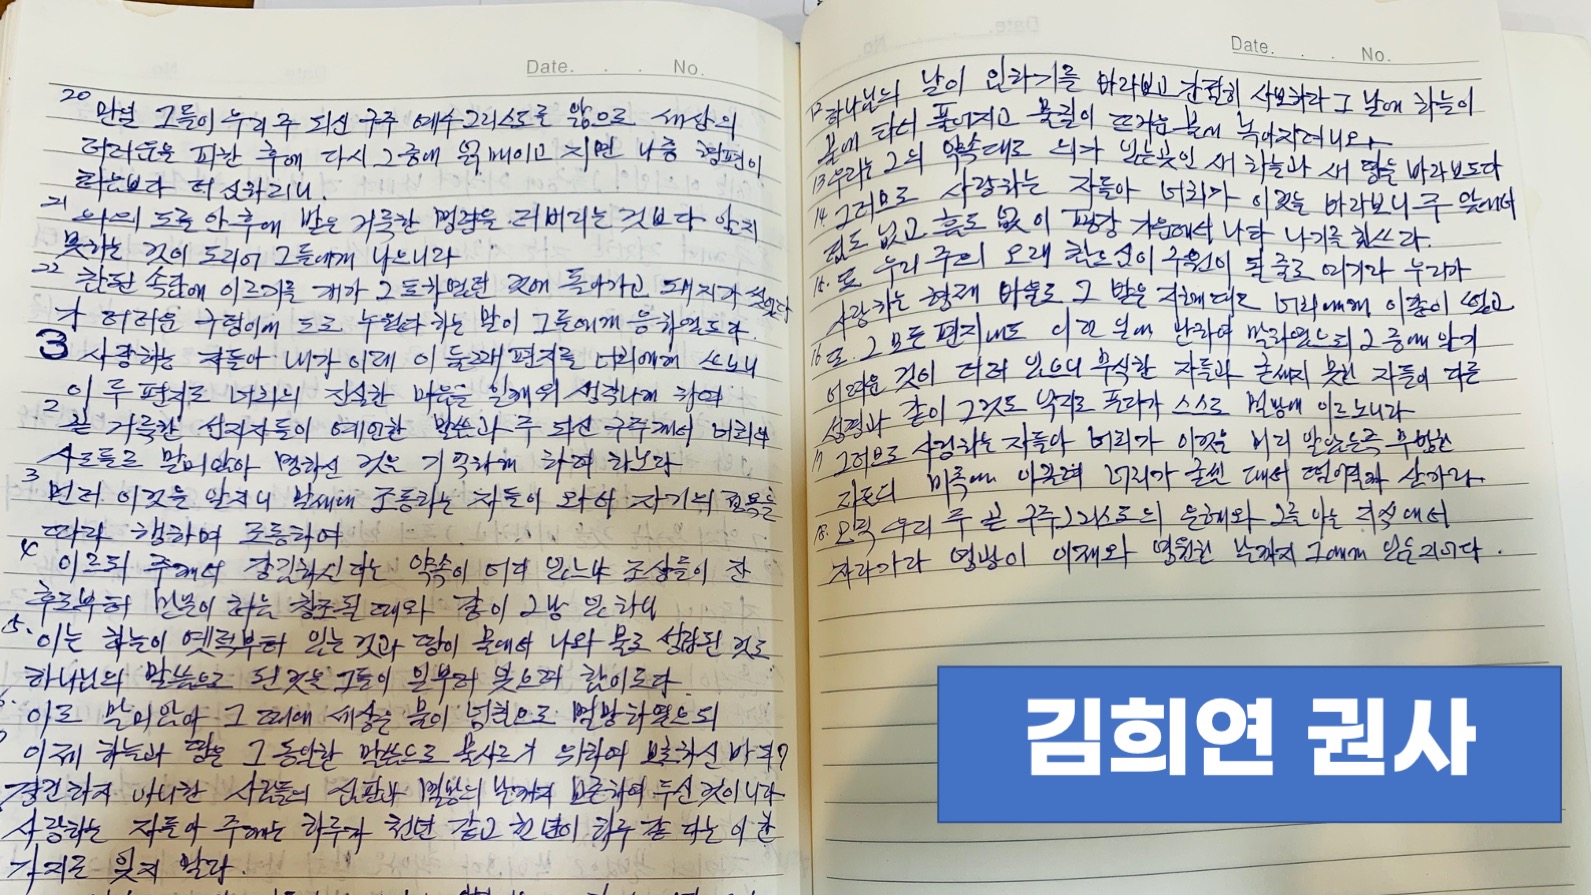 Date. . . No.
20 만일 그들이 우리 주 되신 구주 예수 그리스도를 앎으로 세상의
더러움을 피한 후에 다시 그 중에 얽매이고 지면 나중 형편이
처음보다 더 심하리니
21 의의 도를 안 후에 받은 거룩한 명령을 저버리는 것보다 알지
못하는 것이 도리어 그들에게 나으니라
22 참된 속담에 이르기를 개가 그 토하였던 것에 돌아가고 돼지가 씻었다
가 더러운 구덩이에 도로 누웠다 하는 말이 그들에게 응하였도다
3 사랑하는 자들아 내가 이제 이 둘째 편지를 너희에게 쓰노니
이 두 편지로 너희의 진실한 마음을 일깨워 생각나게 하여
2 곧 거룩한 선지자들이 예언한 말씀과 주 되신 구주께서 너희의
사도들로 말미암아 명하신 것을 기억하게 하려 하노라
3 먼저 이것을 알지니 말세에 조롱하는 자들이 와서 자기의 정욕을
따라 행하며 조롱하여
4 이르되 주께서 강림하신다는 약속이 어디 있느냐 조상들이 잔
후로부터 만물이 처음 창조될 때와 같이 그냥 있다 하니
5. 이는 하늘이 옛적부터 있는 것과 땅이 물에서 나와 물로 성립된 것도
하나님의 말씀으로 된 것을 그들이 일부러 잊으려 함이로다
6. 이로 말미암아 그 때에 세상은 물이 넘침으로 멸망하였으되
이제 하늘과 땅은 그 동일한 말씀으로 불사르기 위하여 보호하신 바 되어
경건하지 아니한 사람들의 심판과 멸망의 날까지 보존하여 두신 것이니라
사랑하는 자들아 주께는 하루가 천년 같고 천년이 하루 같다는 이 한
가지를 잊지 말라.
Date. . . No.
12 하나님의 날이 임하기를 바라보고 간절히 사모하라 그 날에 하늘이
불에 타서 풀어지고 물질이 뜨거운 불에 녹아지려니와
13 우리는 그의 약속대로 의가 있는 곳인 새 하늘과 새 땅을 바라보도다
14. 그러므로 사랑하는 자들아 너희가 이것을 바라보나니 주 앞에서
점도 없고 흠도 없이 평강 가운데서 나타나기를 힘쓰라.
15. 또 우리 주의 오래 참으심이 구원이 될 줄로 여기라 우리가
사랑하는 형제 바울도 그 받은 지혜대로 너희에게 이같이 썼고
16 또 그 모든 편지에도 이런 일에 관하여 말하였으되 그 중에 알기
어려운 것이 더러 있으니 무식한 자들과 굳세지 못한 자들이 다른
성경과 같이 그것도 억지로 풀다가 스스로 멸망에 이르느니라
17 그러므로 사랑하는 자들아 너희가 이것을 미리 알았은즉 무법한
자들의 미혹에 이끌려 너희가 굳센 데서 떨어질까 삼가라
18. 오직 우리 주 곧 구주 그리스도의 은혜와 그를 아는 지식에서
자라가라 영광이 이제와 영원한 날까지 그에게 있을지어다.
김희연 권사